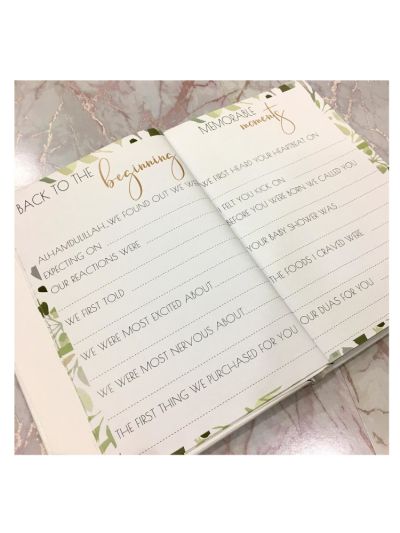 BACK TO THE beginning
ALHAMDULILLAH, WE FOUND OUT WE WE
EXPECTING ON
OUR REACTIONS WERE
WE FIRST TOLD
WE WERE MOST EXCITED ABOUT
WE WERE MOST NERVOUS ABOUT
THE FIRST THING WE PURCHASED FOR YOU
MEMORABLE moments
WE FIRST HEARD YOUR HEARTBEAT ON
I FELT YOU KICK ON
BEFORE YOU WERE BORN WE CALLED YOU
YOUR BABY SHOWER WAS
THE FOODS I CRAVED WERE
OUR DUAS FOR YOU